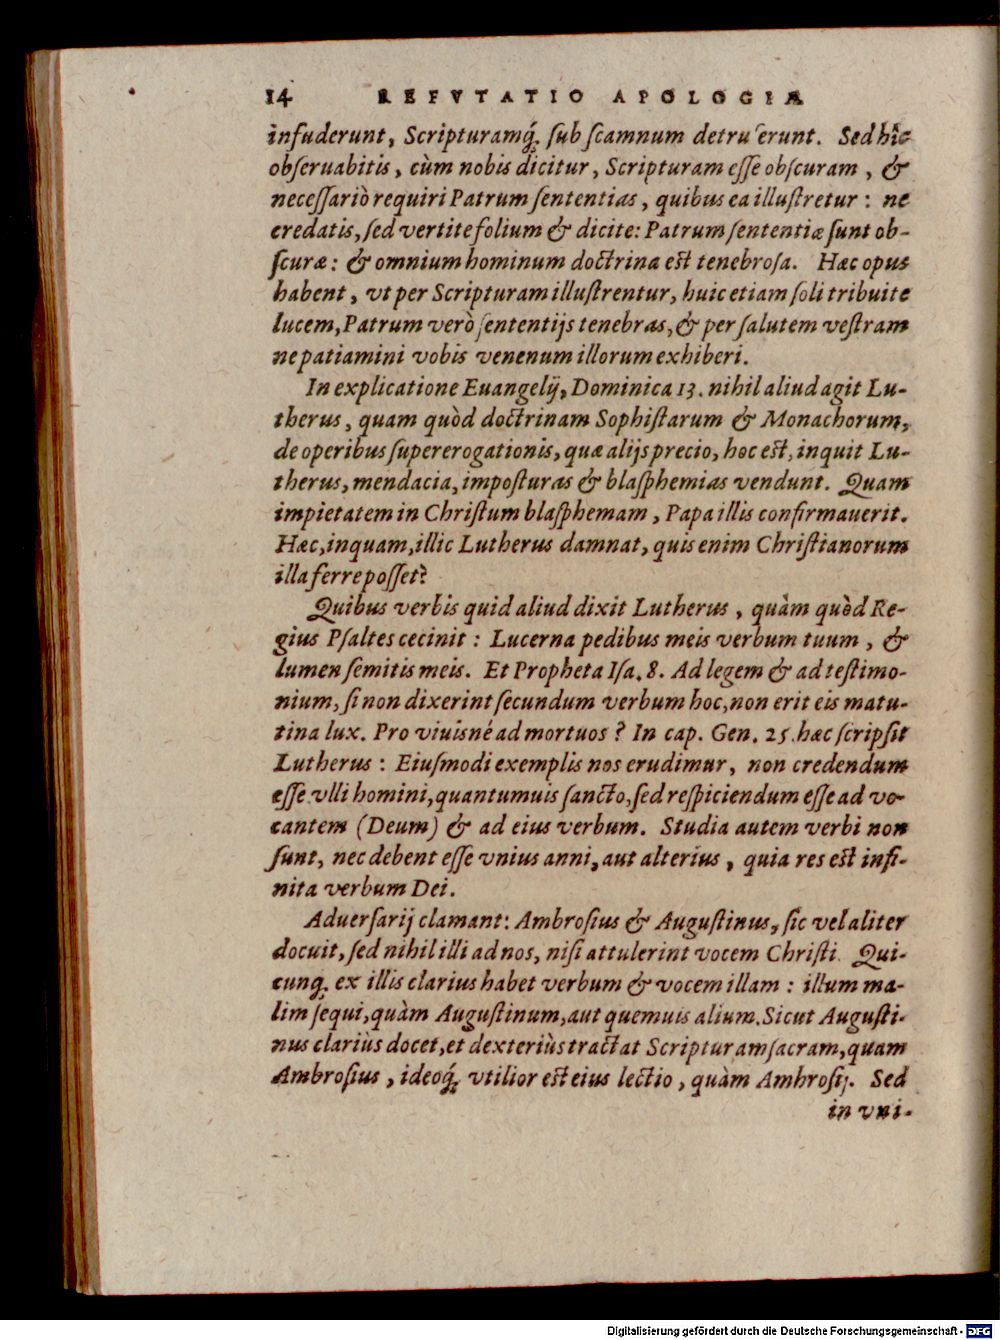 14 REFVTATIO APOLOGIÆ
infuderunt, Scripturamq́; ſub ſcamnum detruſerunt. Sed hîc
obſeruabitis, cùm nobis dicitur, Scripturam eſſe obſcuram, &
neceſſariò requiri Patrum ſententias, quibus ea illuſtretur: ne
credatis, ſed vertite folium & dicite: Patrum ſententiæ ſunt ob-
ſcuræ: & omnium hominum doctrina est tenebroſa. Hæc opus
habent, vt per Scripturam illuſtrentur, huic etiam ſoli tribuite
lucem, Patrum verò ſententijs tenebras, & per ſalutem veſtram
ne patiamini vobis venenum illorum exhiberi.
In explicatione Euangelij, Dominica 13. nihil aliud agit Lu-
therus, quam quòd doctrinam Sophiſtarum & Monachorum,
de operibus ſupererogationis, quæ alijs precio, hoc est, inquit Lu-
therus, mendacia, impoſturas & blaſphemias vendunt. Quam
impietatem in Chriſtum blaſphemam, Papa illis confirmauerit.
Hæc, inquam, illic Lutherus damnat, quis enim Chriſtianorum
illa ferre poſſet?
Quibus verbis quid aliud dixit Lutherus, quàm quòd Re-
gius Pſaltes cecinit: Lucerna pedibus meis verbum tuum, &
lumen ſemitis meis. Et Propheta Iſa. 8. Ad legem & ad teſtimo-
nium, ſi non dixerint ſecundum verbum hoc, non erit eis matu-
tina lux. Pro viuisné ad mortuos? In cap. Gen. 25. hæc ſcripſit
Lutherus: Eiuſmodi exemplis nos erudimur, non credendum
eſſe vlli homini, quantumuis ſancto, ſed reſpiciendum eſſe ad vo-
cantem (Deum) & ad eius verbum. Studia autem verbi non
ſunt, nec debent eſſe vnius anni, aut alterius, quia res est infi-
nita verbum Dei.
Aduerſarij clamant: Ambroſius & Auguſtinus, ſic vel aliter
docuit, ſed nihil illi ad nos, niſi attulerint vocem Chriſti. Qui-
cunq; ex illis clarius habet verbum & vocem illam: illum ma-
lim ſequi, quàm Auguſtinum, aut quemuis alium. Sicut Auguſti-
nus clariùs docet, et dexteriùs tractat Scripturam ſacram, quam
Ambroſius, ideoq́; vtilior est eius lectio, quàm Ambroſij. Sed
in vni-
Digitalisierung gefördert durch die Deutsche Forschungsgemeinschaft - DFG